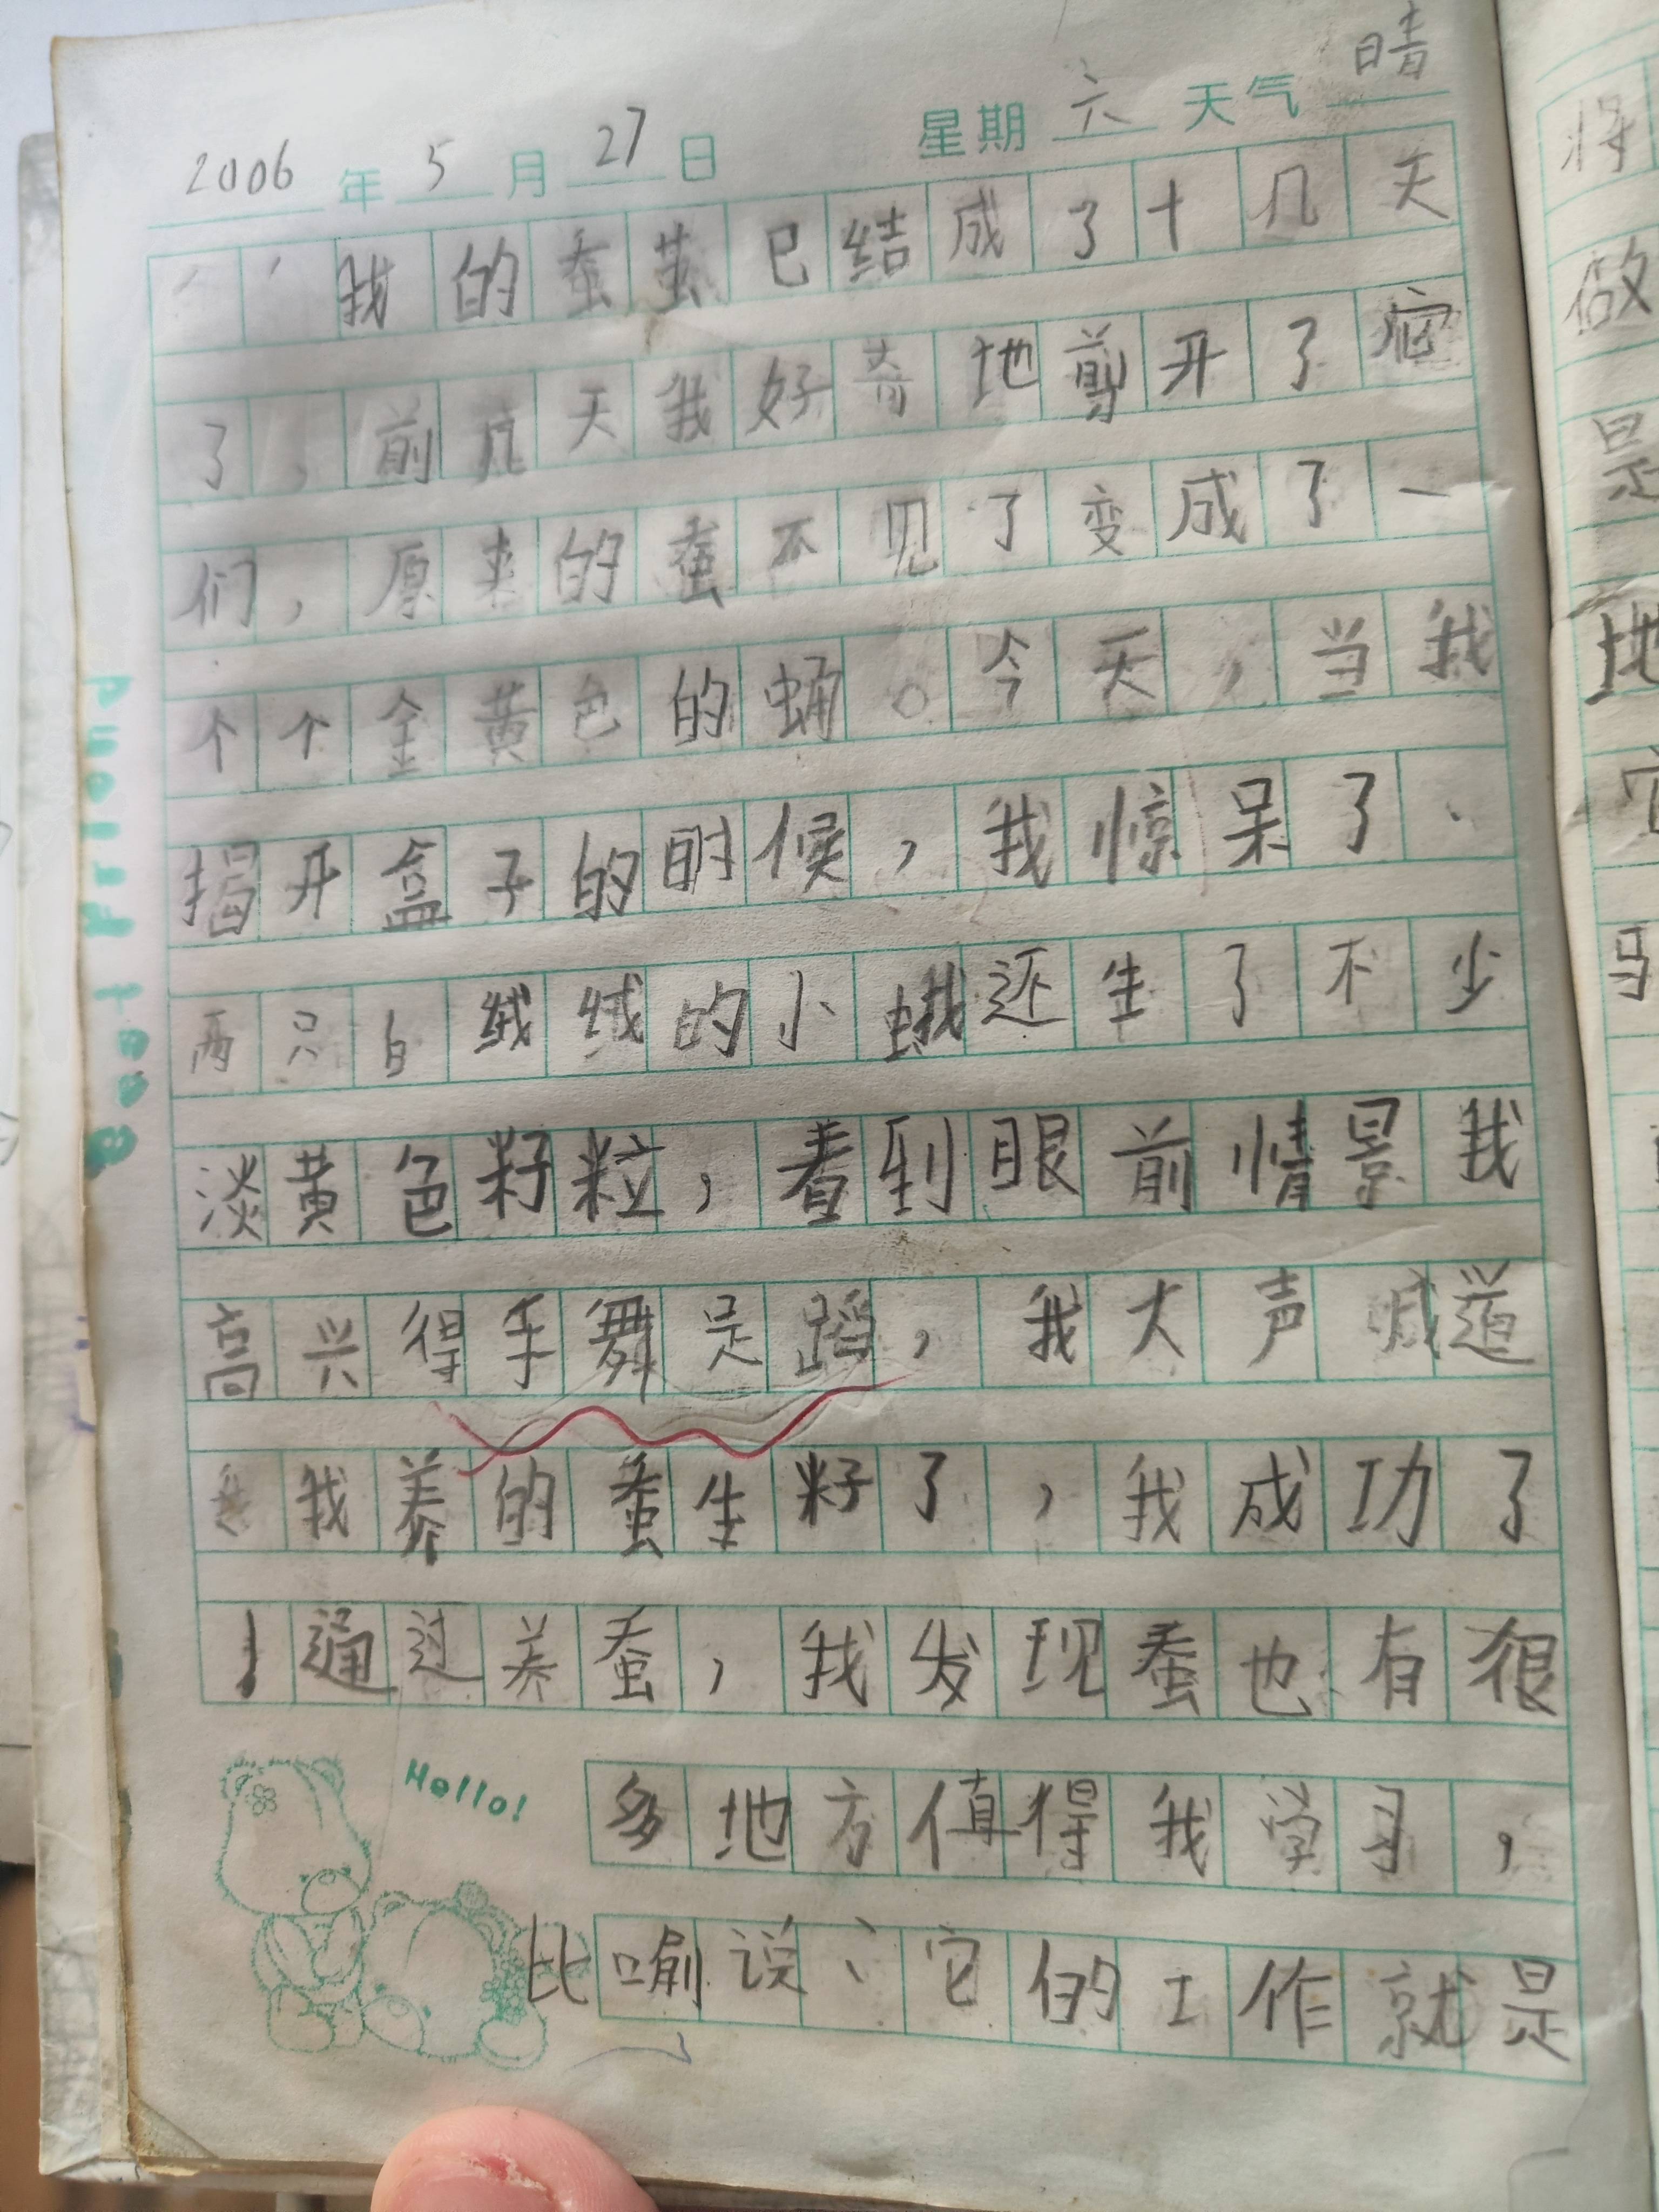 2006年5月27日 星期六 天气 晴
我的蚕茧已结成了十几天
了，前几天我好奇地剪开了它
们，原来的蚕不见了变成了一
个个金黄色的蛹。今天，当我
揭开盒子的时候，我惊呆了、
两只白绒绒的小蛾还生了不少
淡黄色籽粒，看到眼前情景我
高兴得手舞足蹈，我大声喊道
我养的蚕生籽了，我成功了
！通过养蚕，我发现蚕也有很
Hello!
多地方值得我学习，
比喻说、它的工作就是
Best Friend
将
做
是
地
它